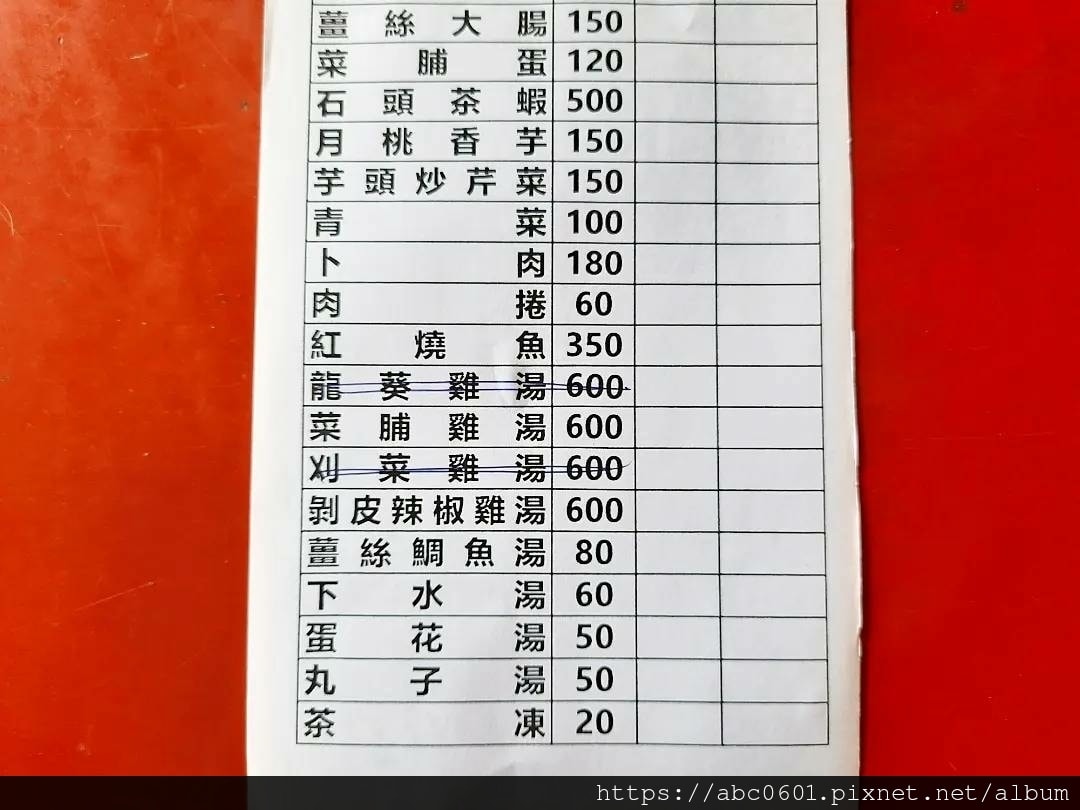 薑絲大腸 150
菜脯蛋 120
石頭茶蝦 500
月桃香芋 150
芋頭炒芹菜 150
青菜 100
卜肉 180
肉捲 60
紅燒魚 350
龍葵雞湯 600
菜脯雞湯 600
刈菜雞湯 600
剝皮辣椒雞湯 600
薑絲鯛魚湯 80
下水湯 60
蛋花湯 50
丸子湯 50
茶凍 20
https://abc0601.pixnet.net/album